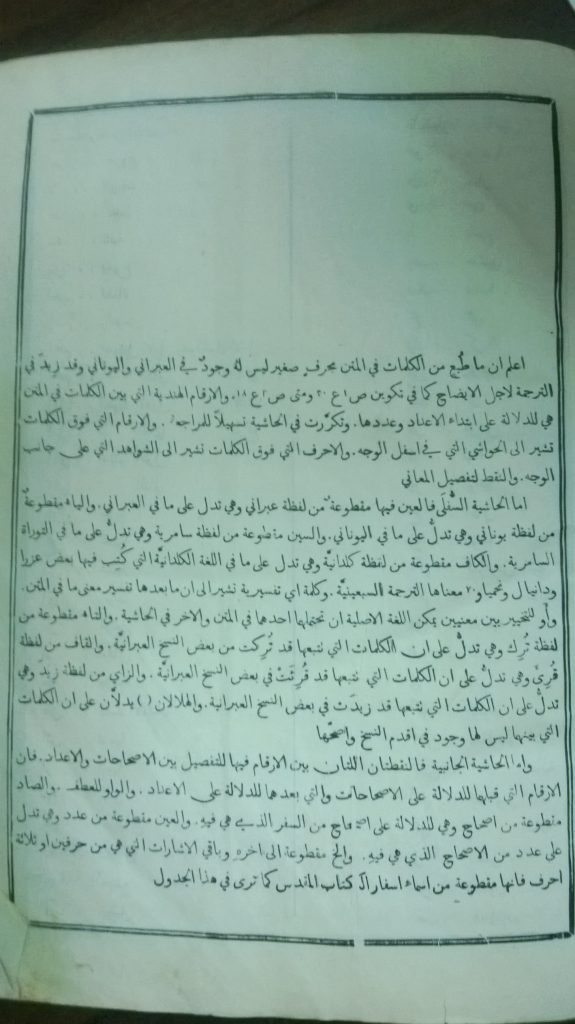 اعلم ان ما طُبع من الكلمات في المتن بحرفٍ صغير ليس لهُ وجودٌ في العبراني واليوناني وقد زيدَ في
الترجمة لاجل الايضاح كما في تكوين ص ١ ع ٣٠ ومتى ص ٢ ع ١٨. والارقام الهندية التي بين الكلمات في المتن
هي للدلالة على ابتداء الاعداد وعددها. وتكرَّرت في الحاشية تسهيلاً للمراجعة. والارقام التي فوق الكلمات
تشير الى الحواشي التي في اسفل الوجه. والاحرف التي فوق الكلمات تشير الى الشواهد التي على جانب
الوجه. والنقط لتفصيل المعاني
اما الحاشية السُّفلَى فالعين فيها مقطوعةٌ من لفظة عبراني وهي تدل على ما في العبراني. والياه مقطوعةٌ
من لفظة يوناني وهي تدلُّ على ما في اليوناني. والسين مقطوعة من لفظة سامرية وهي تدلُّ على ما في التوراة
السامرية. والكاف مقطوعة من لفظة كلدانيَّة وهي تدل على ما في اللغة الكلدانيَّة التي كُتِب فيها بعض عزرا
ودانيال ونحميا و٧٠ معناها الترجمة السبعينيَّة. وكلمة اي تفسيرية تشير الى ان ما بعدها تفسير معنى ما في المتن.
وأو للتخيير بين معنيين يمكن اللغة الاصلية ان تحتملها احدهما في المتن والاخر في الحاشية. والتاء مقطوعة من
لفظة تُرِك وهي تدلُّ على ان الكلمات التي تتبعها قد تُرِكت من بعض النسخ العبرانيَّة. والقاف من لفظة
قُرِئَ وهي تدلُّ على ان الكلمات التي تتبعها قد قُرِئَتْ في بعض النسخ العبرانيَّة. والزاي من لفظة زِيدَ وهي
تدلُّ على ان الكلمات التي تتبعها قد زيدَت في بعض النسخ العبرانية. والهلالان ( ) يدلاَّن على ان الكلمات
التي بينها ليس لها وجود في اقدم النسخ واصحّها
واما الحاشية الجانبية فالنقطتان اللتان بين الارقام فيها للتفصيل بين الاصحاحات والاعداد. فان
الارقام التي قبلها للدلالة على الاصحاحات والتي بعدهما للدلالة على الاعداد. والواو للعطف. والصاد
مقطوعة من اصحاح وهي للدلالة على اصحاح من السفر الذي هي فيهِ. والعين مقطوعة من عدد وهي تدل
على عدد من الاصحاح الذي هي فيهِ. والخ مقطوعة الى اخره وباقي الاشارات التي هي من حرفين او ثلاثة
احرف فانها مقطوعة من اسماء اسفار الكتاب المقدس كما ترى في هذا الجدول